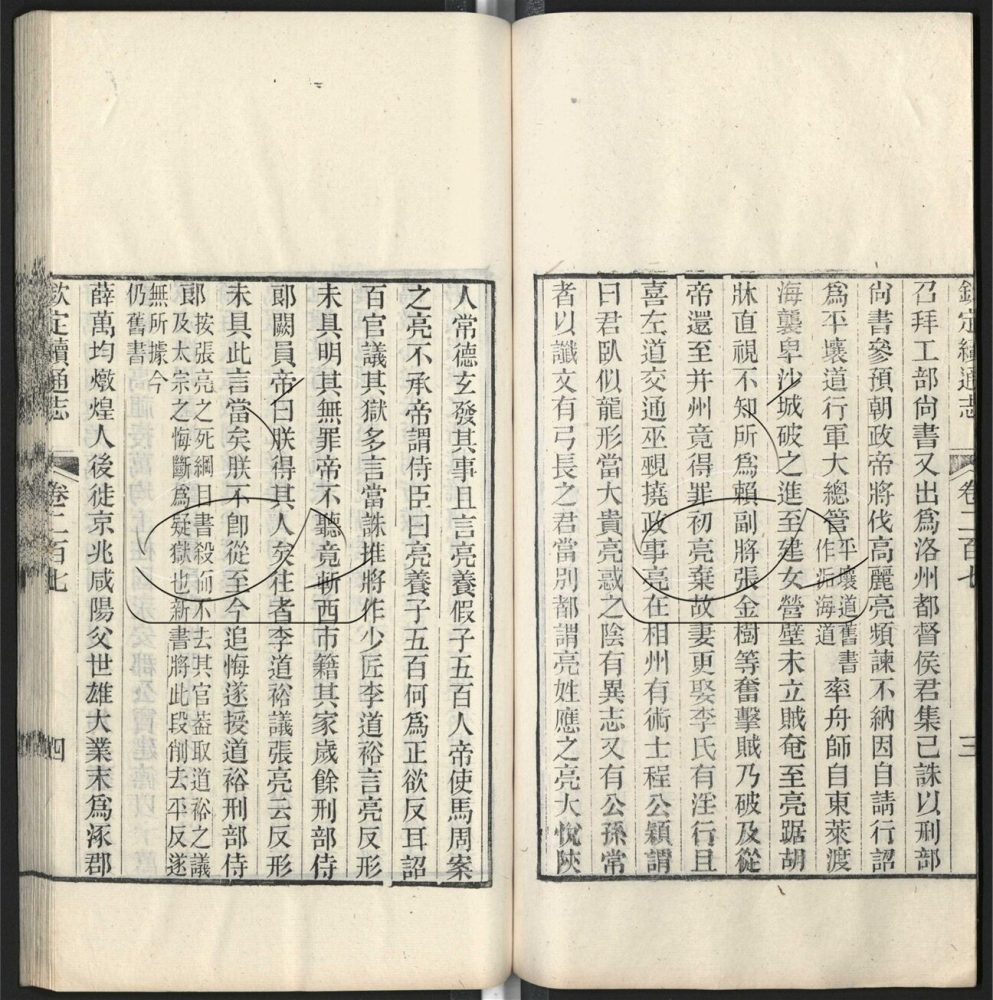 欽定續通志 卷二百七 三
召拜工部尚書又出爲洛州都督侯君集已誅以刑部
尚書參預朝政帝將伐高麗亮頻諫不納因自請行詔
爲平壤道行軍大總管平壤道舊書作滄海道率舟師自東萊渡
海襲卑沙城破之進至建女營壁未立賊奄至亮踞胡
牀直視不知所爲賴副將張金樹等奮擊賊乃破及從
帝還至并州竟得罪初亮棄故妻更娶李氏有淫行且
喜左道交通巫覡撓政事亮在相州有術士程公穎謂
曰君臥似龍形當大貴亮惑之陰有異志又有公孫常
者以讖文有弓長之君當別都謂亮姓應之亮大悅陝
人常德玄發其事且言亮養假子五百人帝使馬周案
之亮不承帝謂侍臣曰亮養子五百何爲正欲反耳詔
百官議其獄多言當誅惟將作少匠李道裕言亮反形
未具明其無罪帝不聽竟斬西市籍其家歲餘刑部侍
郎闕員帝曰朕得其人矣往者李道裕議張亮云反形
未具此言當矣朕不卽從至今追悔遂授道裕刑部侍
郎按張亮之死綱目書殺而不去其官葢取道裕之議
及太宗之悔斷爲疑獄也新書將此段削去平反遂
無所據今
仍舊書
薛萬均燉煌人後徙京兆咸陽父世雄大業末爲涿郡
欽定續通志 卷二百七 四